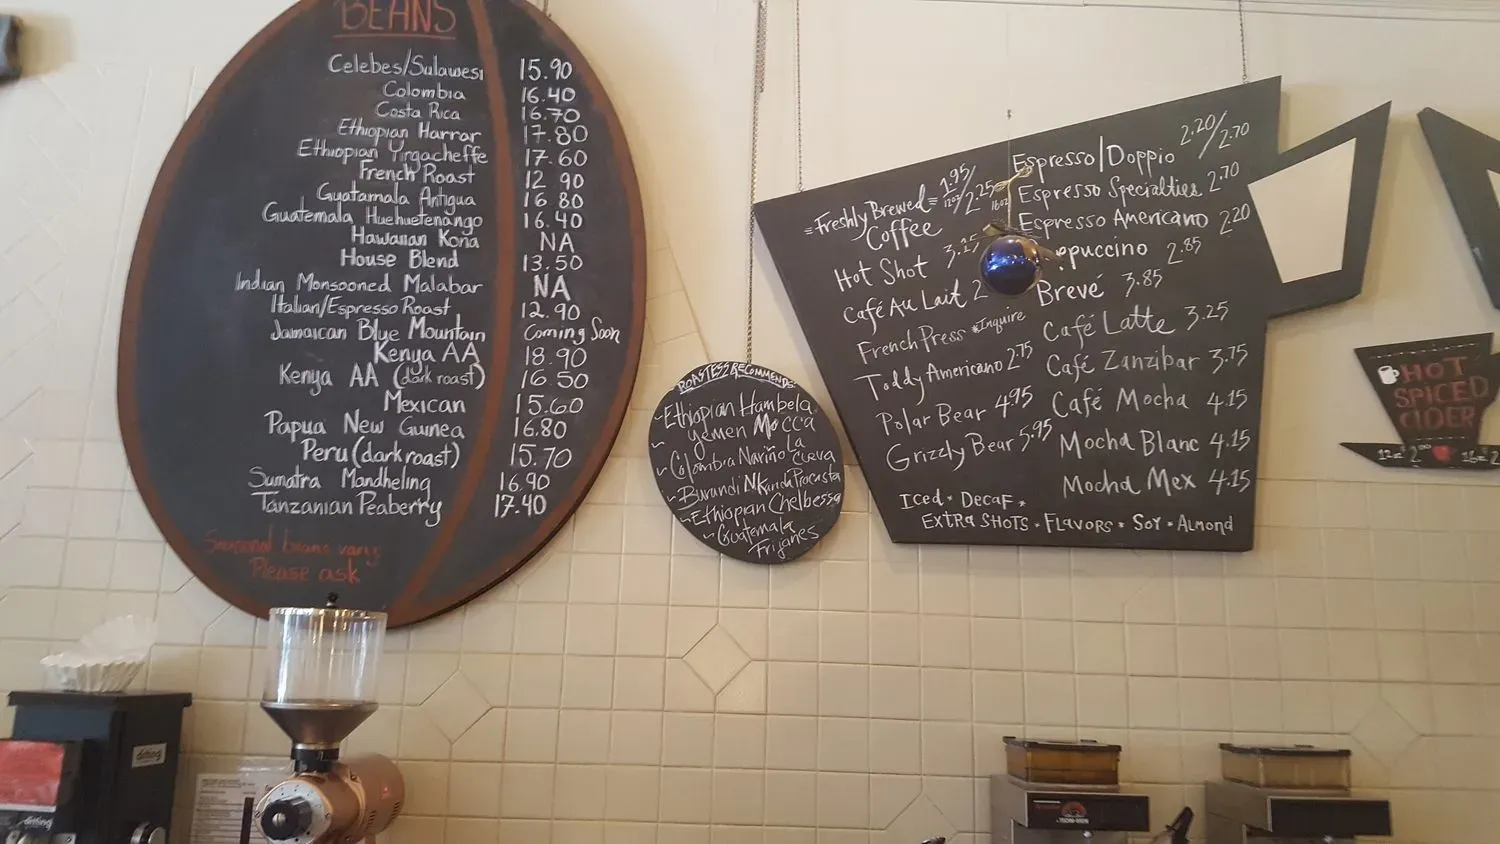 BEANS
Celebes/Sulawesi 15.90
Colombia 16.40
Costa Rica 16.70
Ethiopian Harrar 17.80
Ethiopian Yirgacheffe 17.60
French Roast 12 90
Guatamala Antigua 16.80
Guatemala Huehuetenango 16.40
Hawaiian Kona NA
House Blend 13.50
Indian Monsooned Malabar NA
Italian/Espresso Roast 12.90
Jamaican Blue Mountain Coming Soon
Kenya AA 18.90
Kenya AA (dark roast) 16.50
Mexican 15.60
Papua New Guinea 16.80
Peru (dark roast) 15.70
Sumatra Mandheling 16.90
Tanzanian Peaberry 17.40
Seasonal beans vary
Please ask
ROASTERS RECOMMENDS
Ethiopian Hambela
Yemen Mocca
Colombia Nariño La
Cueva
Burundi
Ethiopian Chelbessa
Guatemala
Frijanes
Freshly Brewed 1.95/2.25
12oz 16oz
Coffee
Hot Shot 3.25
Café Au Lait 2
French Press *Inquire
Toddy Americano 2.75
Polar Bear 4.95
Grizzly Bear 5.95
Espresso/Doppio 2.20/2.70
Espresso Specialties 2.70
Espresso Americano 2.20
puccino 2.85
Brevé 3.85
Café Latte 3.25
Café Zanzibar 3.75
Café Mocha 4.15
Mocha Blanc 4.15
Mocha Mex 4.15
Iced * Decaf *
Extra Shots * Flavors * Soy * Almond
HOT
SPICED
CIDER
12oz 2.00 16oz 2
ditting
ditting